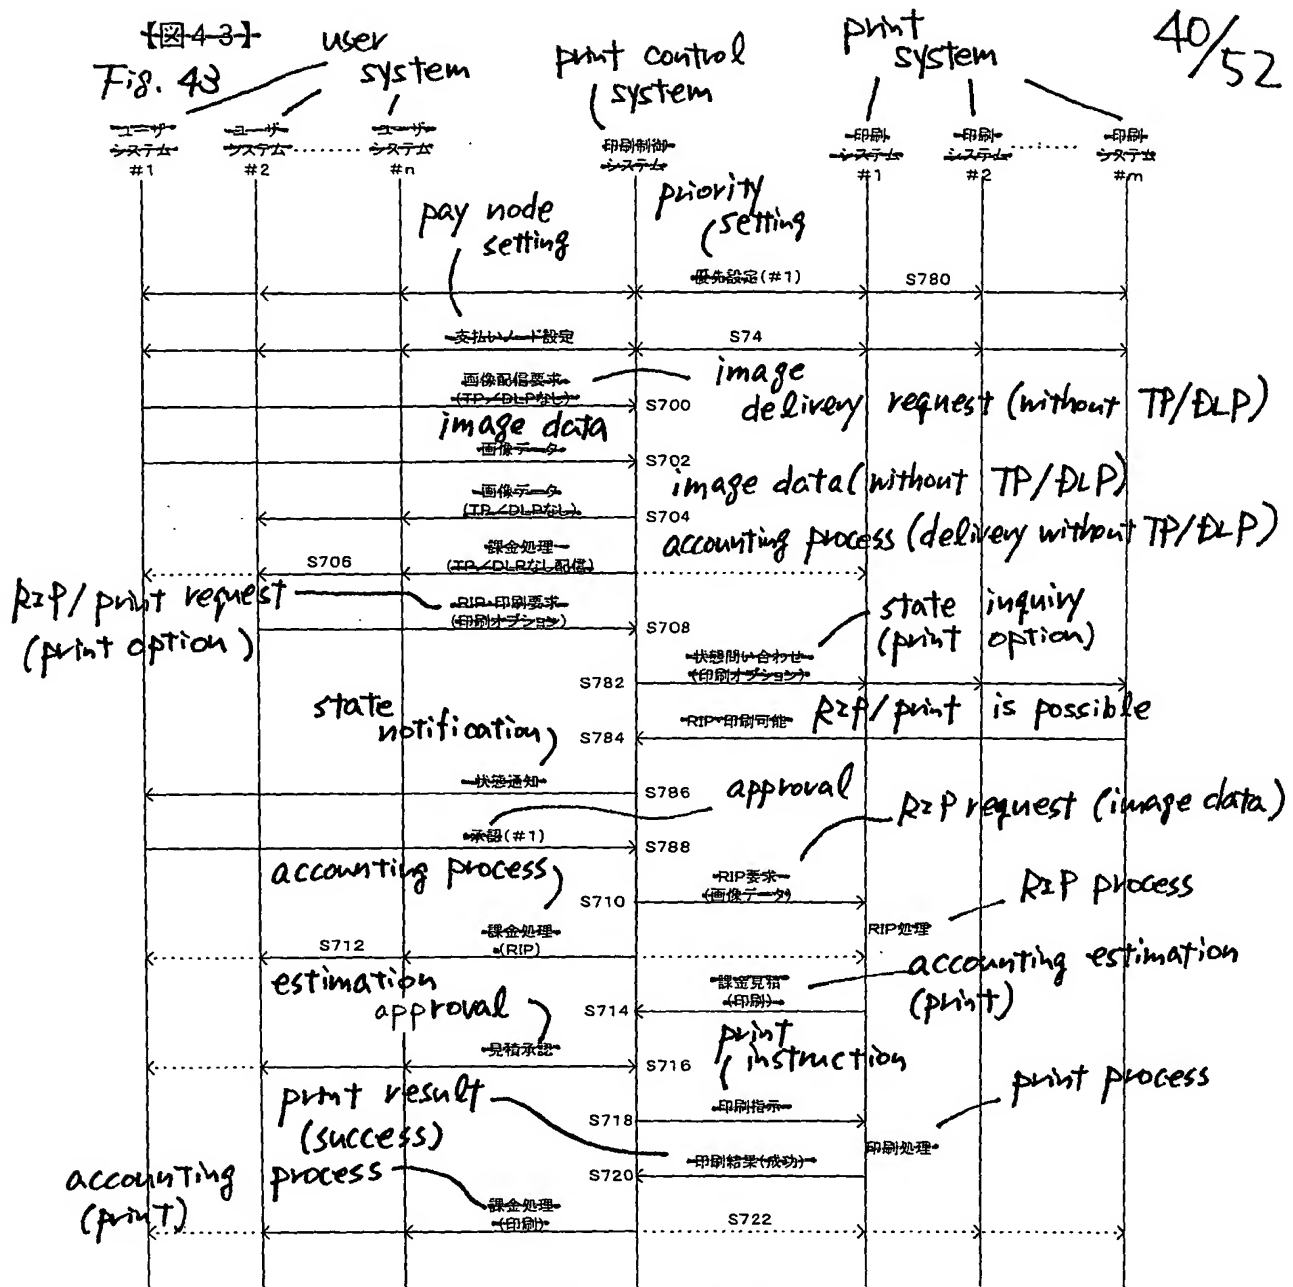 【図43】
user
system
print
system
40/52
Fig. 43
print control
system
ユーザ
システム
#1
ユーザ
システム
#2
ユーザ
システム
#n
印刷制御
システム
印刷
システム
#1
印刷
システム
#2
印刷
システム
#m
pay node
setting
priority
setting
優先設定(#1)
S780
支払いノード設定
S74
画像配信要求
(TP/DLPなし)
S700
image
delivery request (without TP/DLP)
image data
画像データ
S702
image data (without TP/DLP)
画像データ
(TP/DLPなし)
S704
accounting process (delivery without TP/DLP)
S706
課金処理
(TP/DLPなし配信)
RIP/print request
(print option)
RIP・印刷要求
(印刷オプション)
S708
state inquiry
(print option)
S782
状態問い合わせ
(印刷オプション)
state
notification
S784
RIP・印刷可能
RIP/print is possible
状態通知
S786
approval
RIP request (image data)
承認(#1)
S788
accounting process
S710
RIP要求
(画像データ)
RIP処理
RIP process
S712
課金処理
(RIP)
estimation
approval
S714
課金見積
(印刷)
accounting estimation
(print)
見積承認
S716
print
instruction
print result
(success)
S718
印刷指示
print process
印刷処理
S720
印刷結果(成功)
accounting process
(print)
課金処理
(印刷)
S722